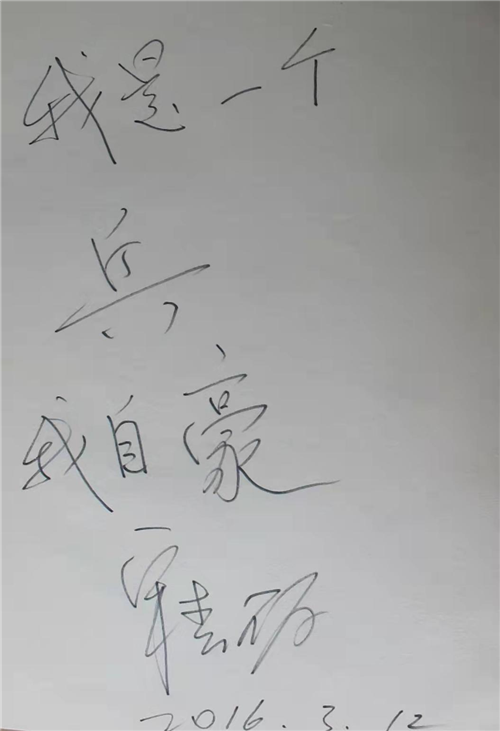 我是一个
兵
我自豪
2016.3.12